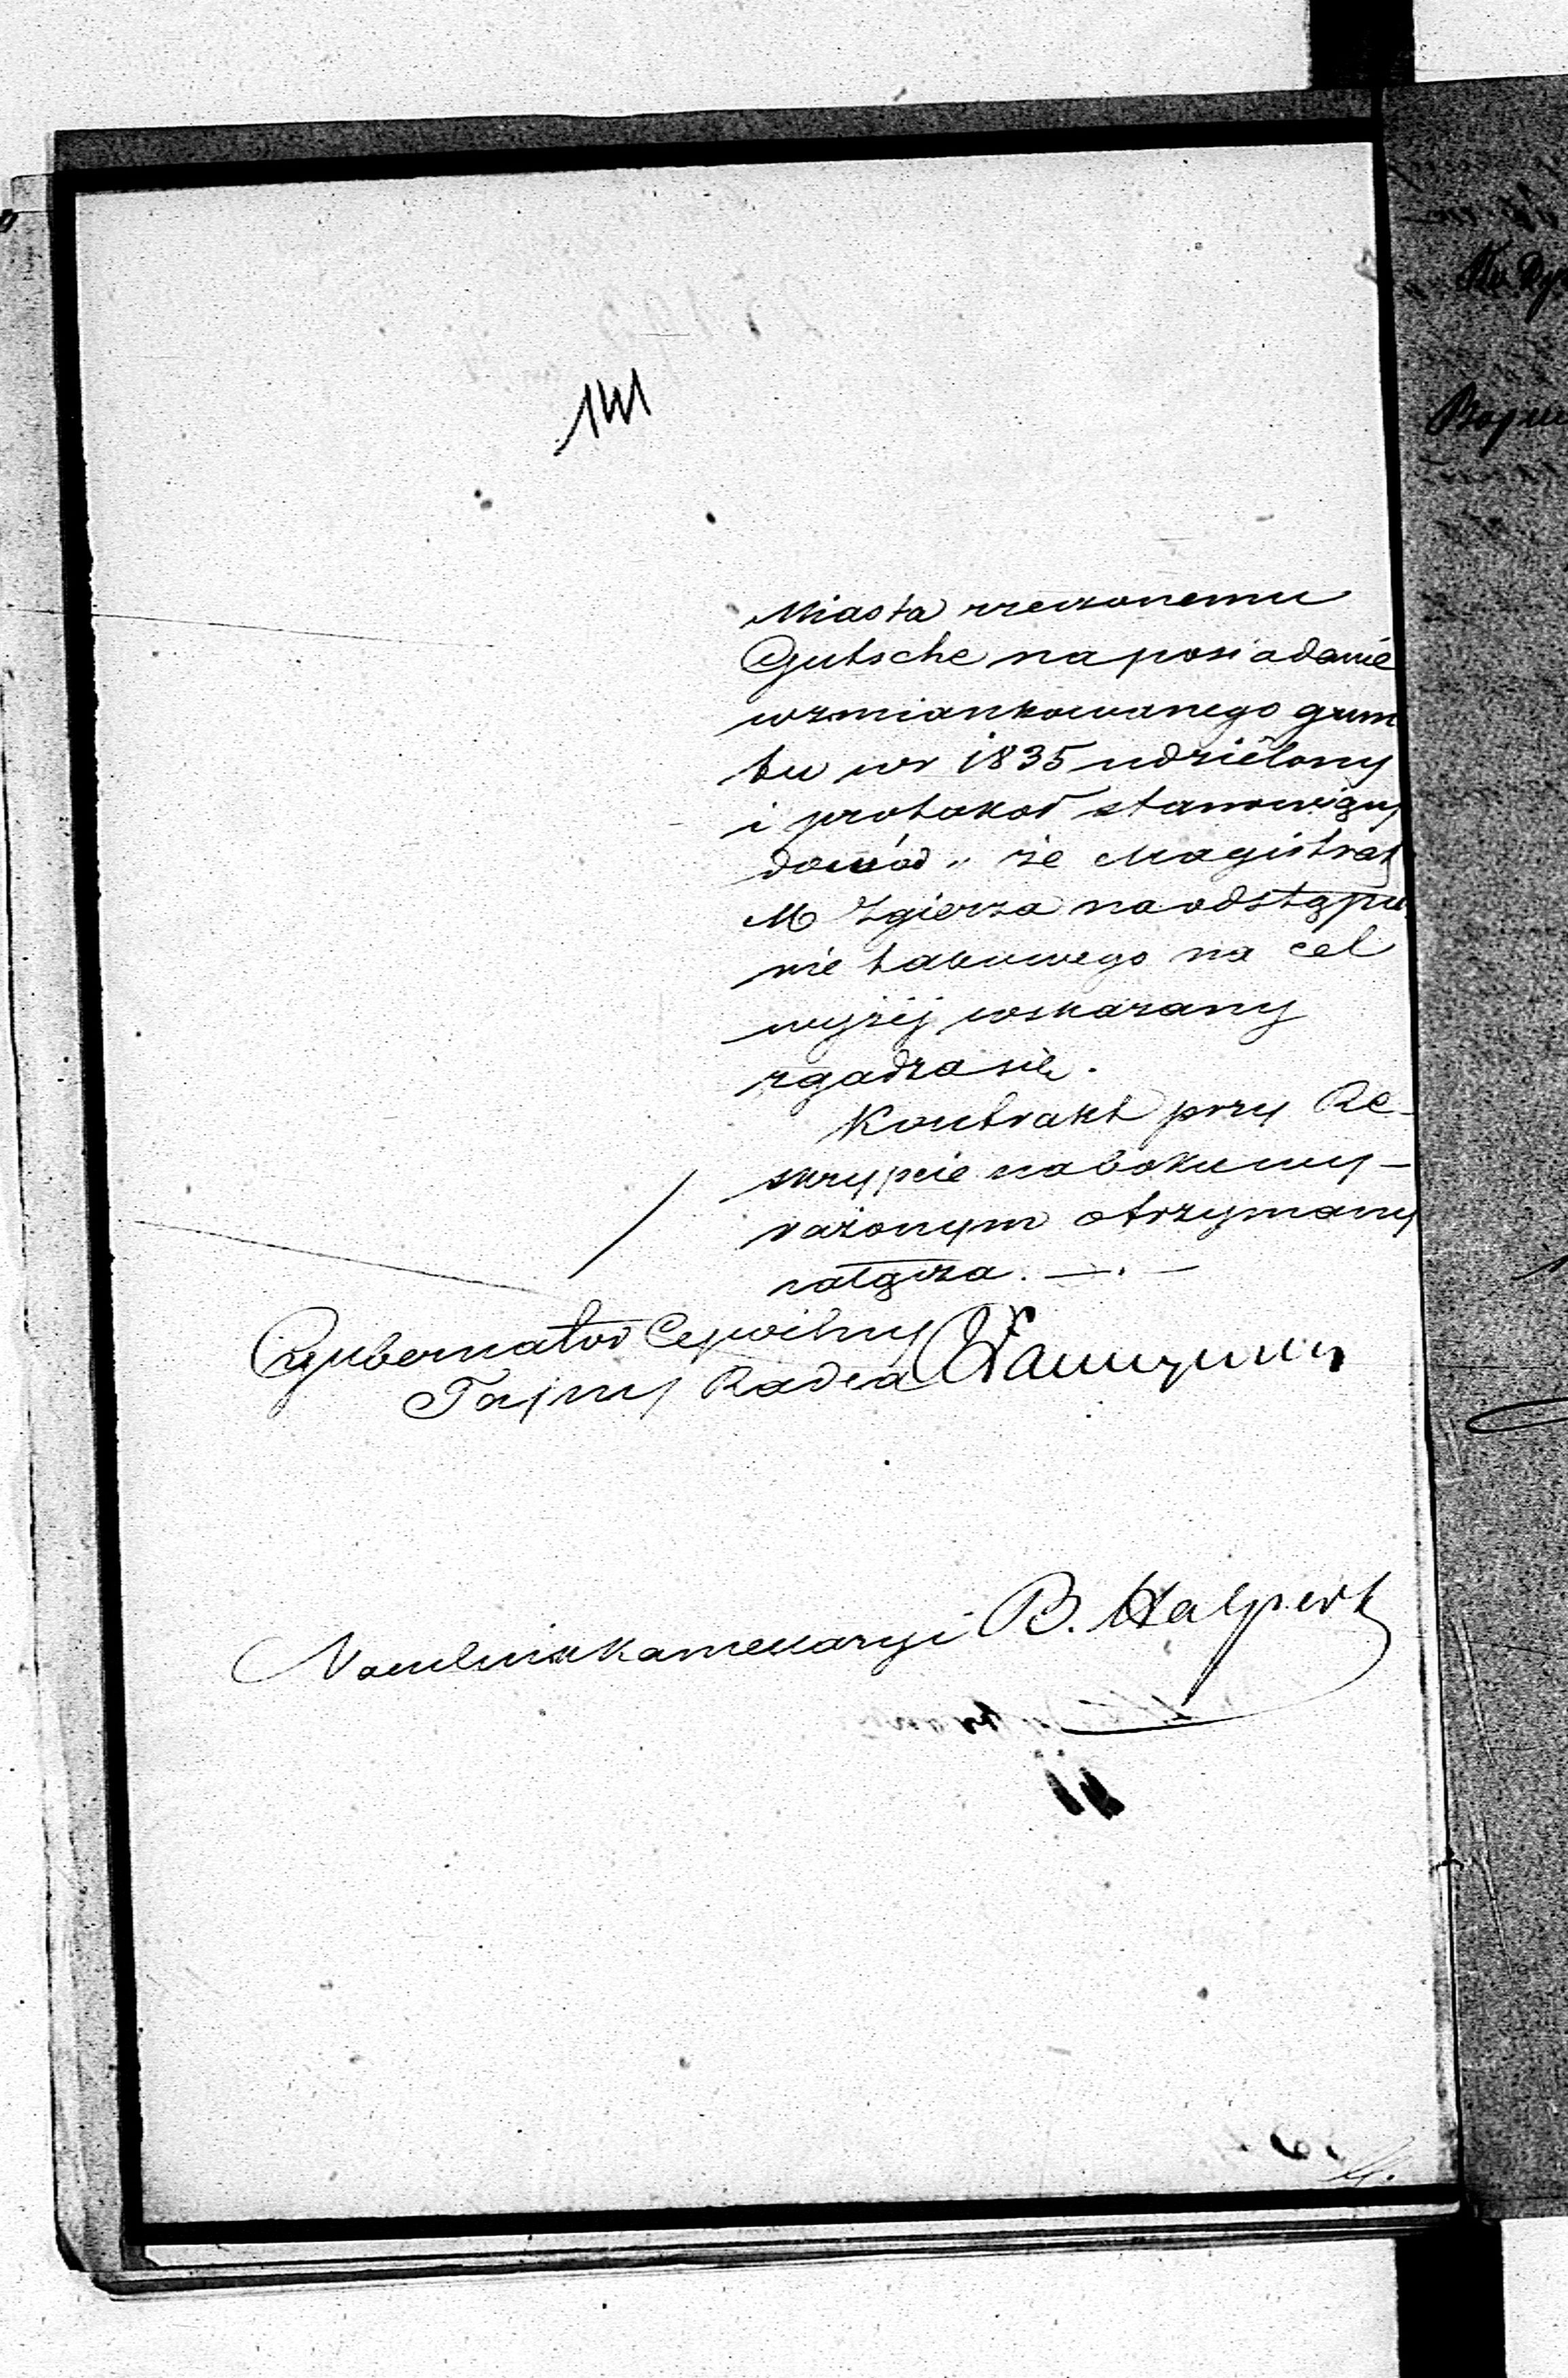 141
Miasta rzeczonemu
Gutsche na posiadanie
wzmiankowanego grun
tu w r 1835 udzielony
i protokoł stanowiący
dowód „ że Magistrat
M Zgierza na odstąpie
nie takowego na cel
wyżej wskazany
zgadza się.
Kontrakt przy Re-
skrypcie na boku wy-
rażonym otrzymany
załącza. — . —
Gubernator Cywilny
Tajny Radca
Naczelnik kancellaryi B. Halpert